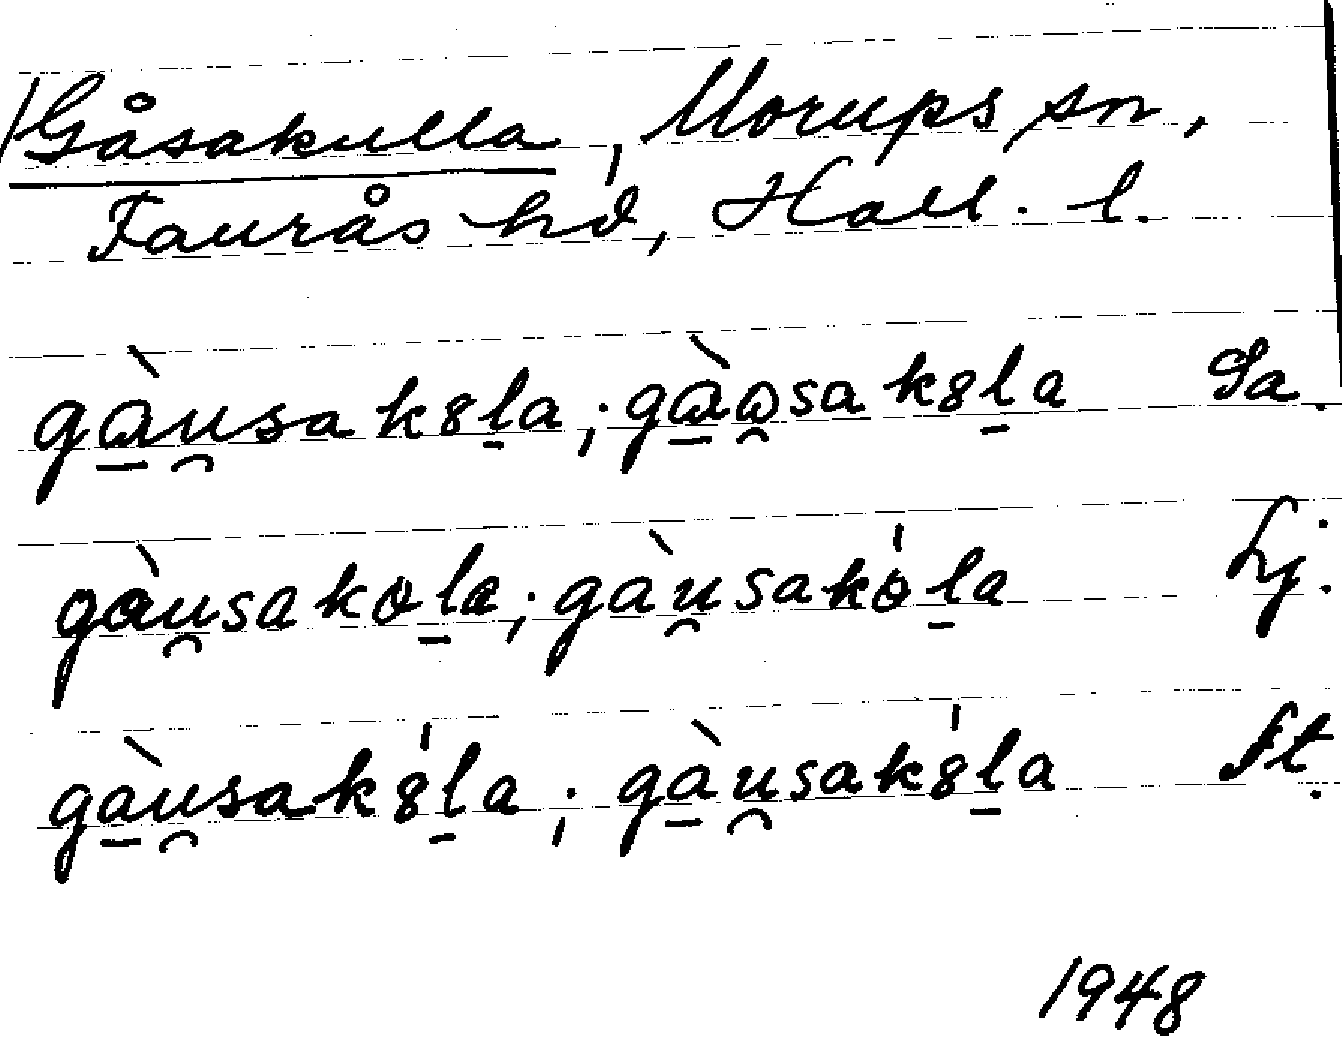 Gåsakulla, Morups sn,
Faurås hd, Hall. l.
gàu̯sak8l̠a; gàω̯sak8l̠a Sa.
gàu̯sakol̠a; gàu̯sakól̠a Lj.
gàu̯sak8́l̠a; gàu̯sak8́l̠a St.
1948